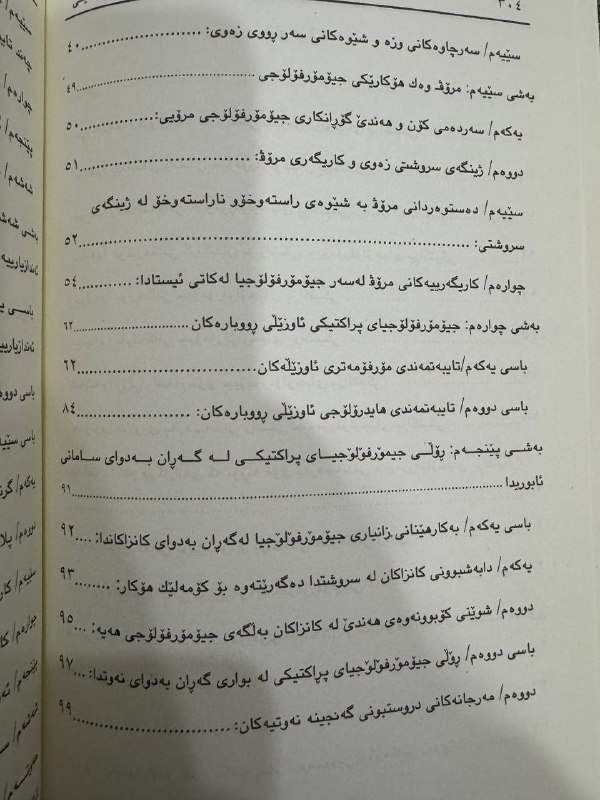 ٣٠٤
سێیەم/ سەرچاوەکانی وزە و شێوەکانی سەر ڕووی زەوی: ٤٠
بەشی سێیەم: مرۆڤ وەك هۆکارێکی جیۆمۆرفۆلۆجی ٤٩
یەکەم/ سەردەمی کۆن و هەندێ گۆڕانکاری جیۆمۆرفۆلۆجی مرۆیی: ٥٠
دووەم/ ژینگەی سروشتی زەوی و کاریگەری مرۆڤ: ٥١
سێیەم/ دەستوەردانی مرۆڤ بە شێوەی راستەوخۆو ناراستەوخۆ لە ژینگەی
سروشتی: ٥٢
چوارەم/ کاریگەرییەکانی مرۆڤ لەسەر جیۆمۆرفۆلۆجیا لەکاتی ئیستادا: ٥٤
بەشی چوارەم: جیۆمۆرفۆلۆجیای پراکتیکی ئاوزێڵی ڕووبارەکان ٦٢
باسی یەکەم/ تایبەتمەندی مۆرفۆمەتری ئاوزێڵەکان ٦٢
باسی دووەم/ تایبەتمەندی هایدرۆلۆجی ئاوزێڵی ڕووبارەکان: ٨٤
بەشی پێنجەم: ڕۆڵی جیمۆرفۆلۆجیای پراکتیکی لە گەڕان بەدوای سامانی
ئابوریدا ٩١
باسی یەکەم/ بەکارهێنانی زانیاری جیۆمۆرفۆلۆجیا لەگەڕان بەدوای کانزاکاندا: ٩٢
یەکەم/ دابەشبوونی کانزاکان لە سروشتدا دەگەڕێتەوە بۆ کۆمەلێك هۆکار: ٩٣
دووەم/ شوێنی کۆبوونەوەی هەندێ لە کانزاکان بەڵگەی جیۆمۆرفۆلۆجی هەیە: ٩٥
باسی دووەم/ ڕۆڵی جیۆمۆرفۆلۆجیای پراکتیکی لە بواری گەڕان بەدوای نەوتدا: ٩٧
دووەم/ مەرجانەکانی دروستبونی گەنجینە نەوتیەکان: ٩٩